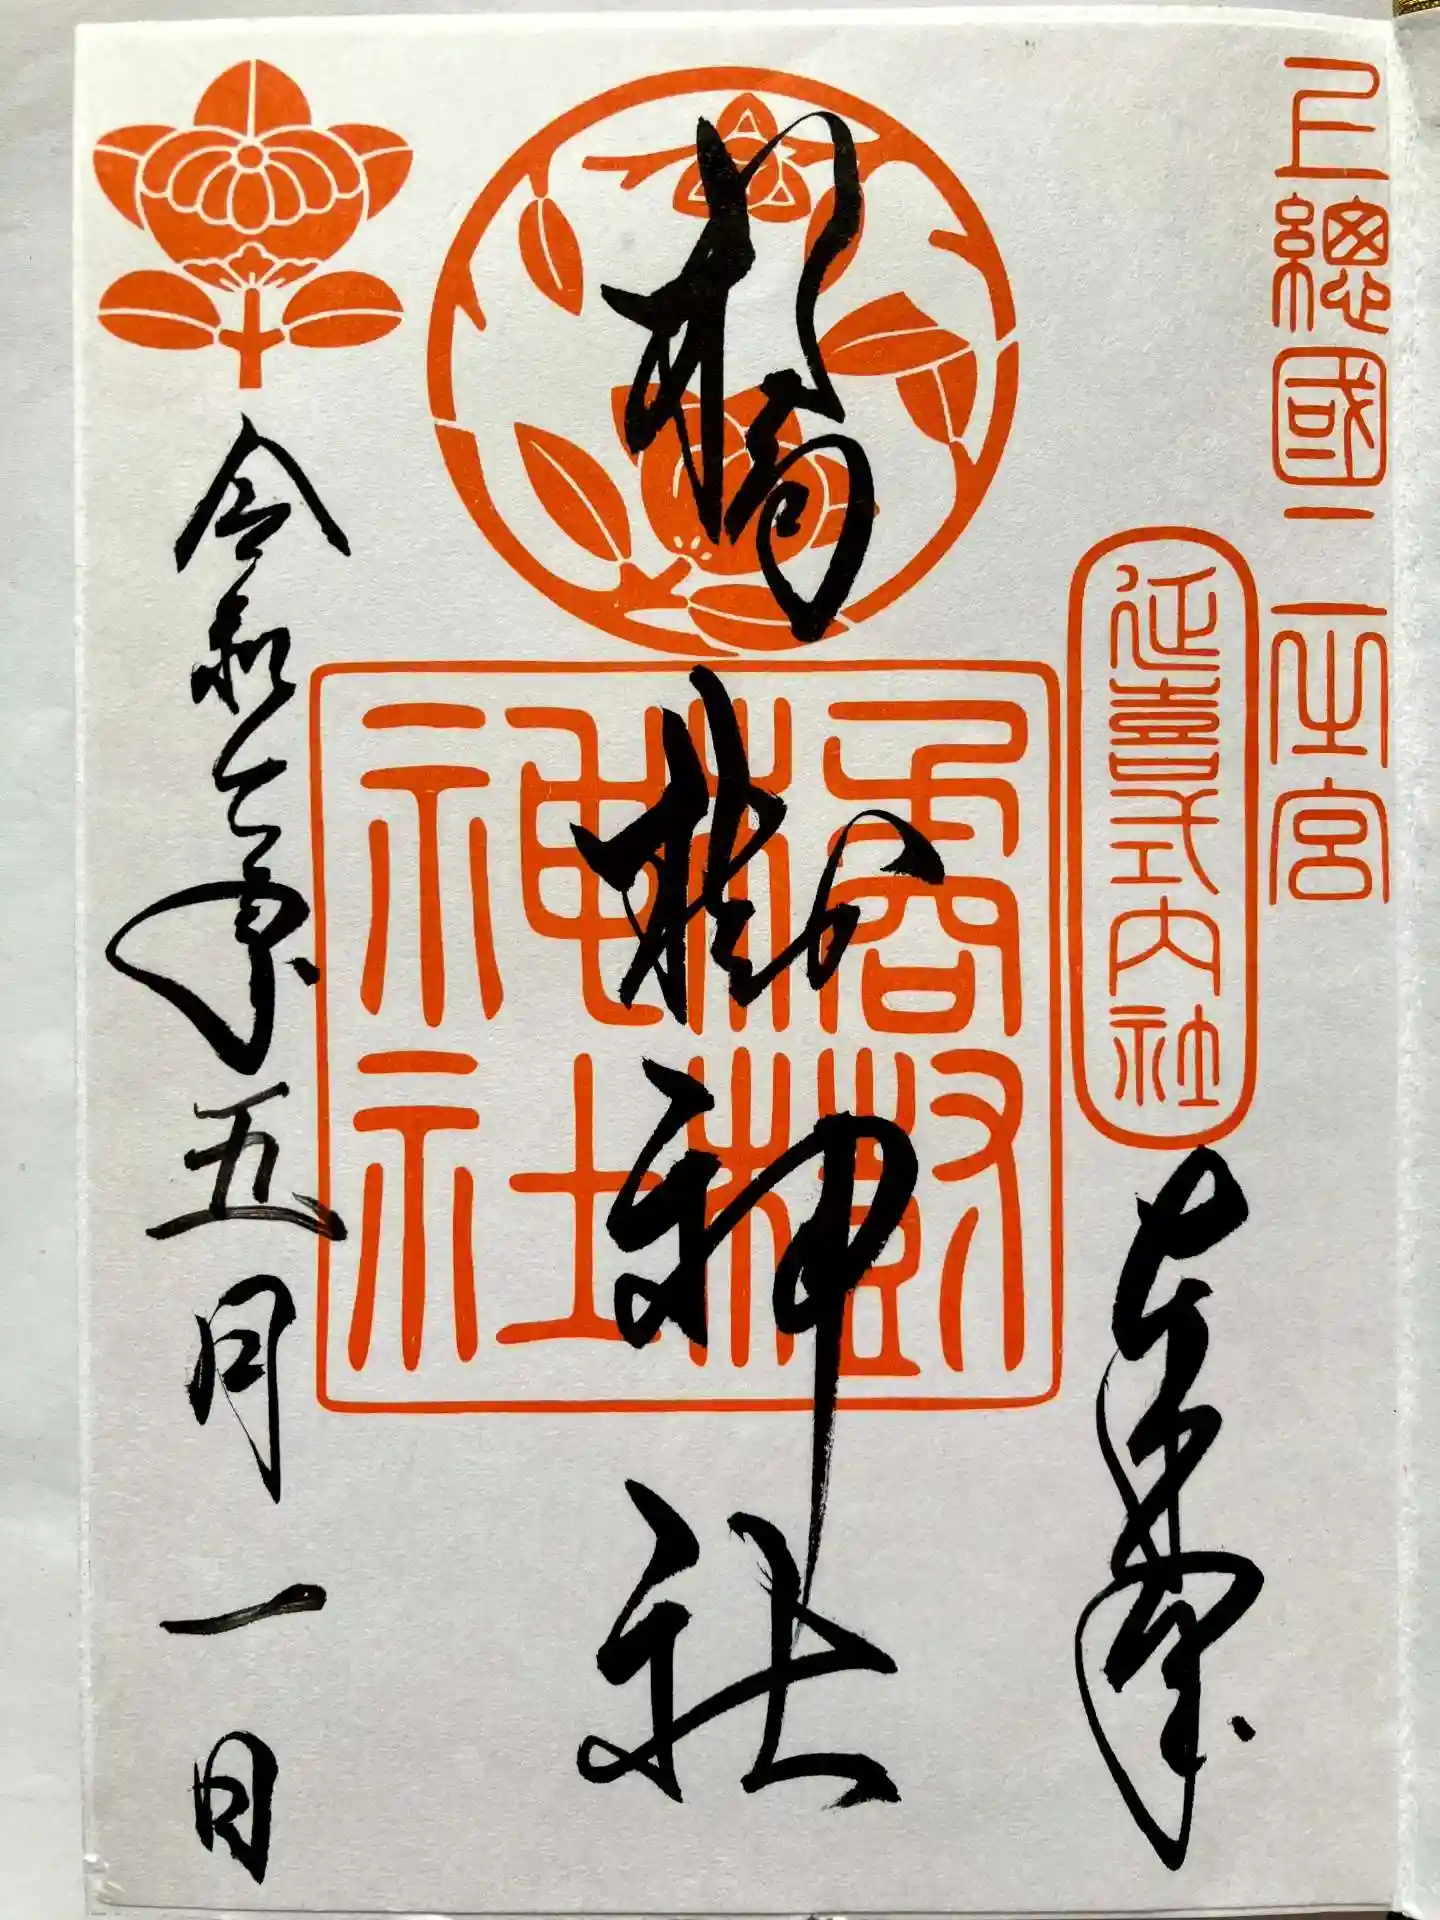 上總國二之宮
延喜式内社
奉拝
橘樹神社
橘樹神社
令和六年五月一日